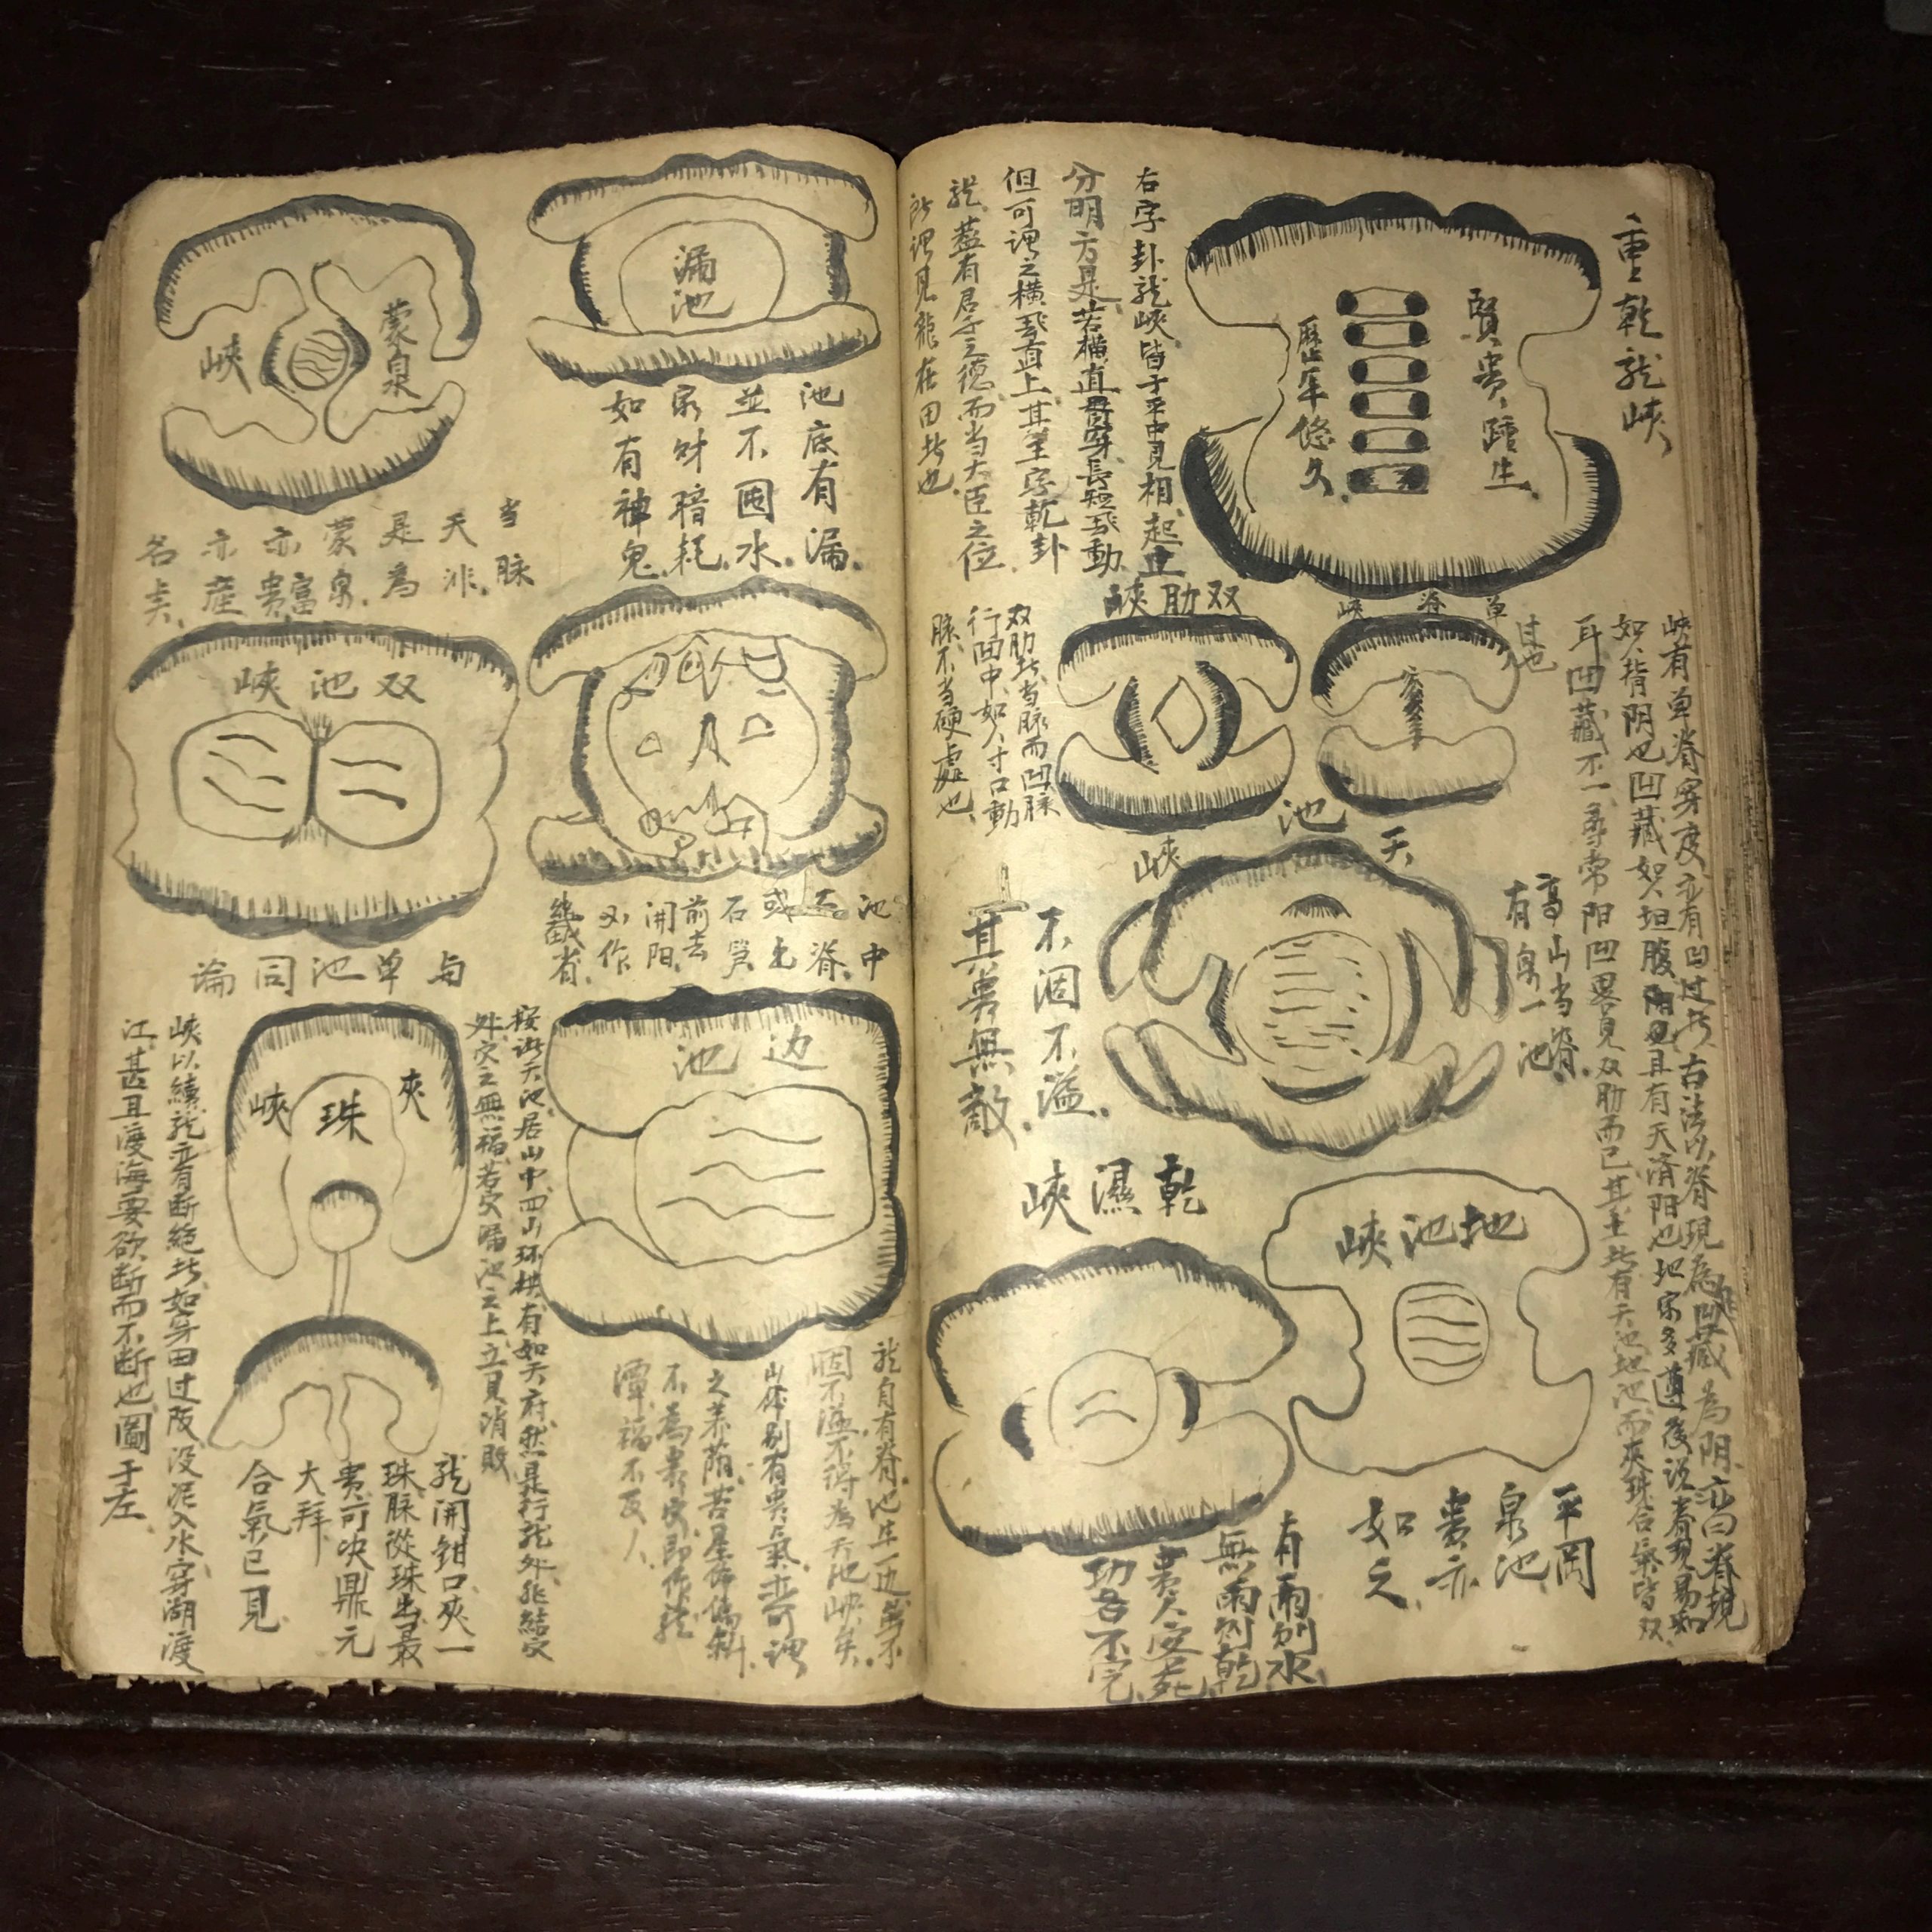 重乾龍峽
賢貴踵生
歷年悠久
右字卦龍峽皆于平中見相起止
分明方是若橫直貫穿長短飛動
但可謂之橫飛直上其至字乾卦
龍蓋有君子之德而当大臣之位
所謂見龍在田者也
峽有单脊穿度亦有凹过者古法以脊現為凹藏為阴亦曰脊現
如指阴也凹藏如坦腹阳也且有天済阳也地家多遵後說脊現易知
耳凹藏不一尋常阳凹畧見双肋而已其主者有天池地池而夾珠合氣皆双
过也
单脊峽
双肋峽
双肋者当脉而凹脉
行凹中如人寸口動
脉不当硬處也
天池峽
高山当脊
有泉一池
不涸不溢
其貴無敵
地池峽
平岡
泉池
貴亦
如之
乾濕峽
有雨則水
無雨則乾
貴人定死
功名不完
漏池
池底有漏
並不囤水
家財暗耗
如有神鬼
蒙泉峽
当脉
天泮
是為
蒙泉
亦富
亦貴
亦產
名夫
池中
石脊
或光
石笋
前去
開阳
双池峽
与单池同論
边池
龍自有脊池生一边無不
涸不溢不得為天池峽矣
山體別有貴氣亦可謂
之美蔭若星体偏斜
不為貴穴即作龍
潭福不及人
按此天池居山中四山环拱有如天府然是行龍外非結穴
外穴之無福若穴漏池之上立見消敗
夾珠峽
龍開鉗口夾一
珠脉從珠出最
貴可决鼎元
大拜
合氣已見
峽以續龍亦有断絕者如穿田过阪没泥入水穿湖渡
江甚且渡海要欲断而不断也圖于左